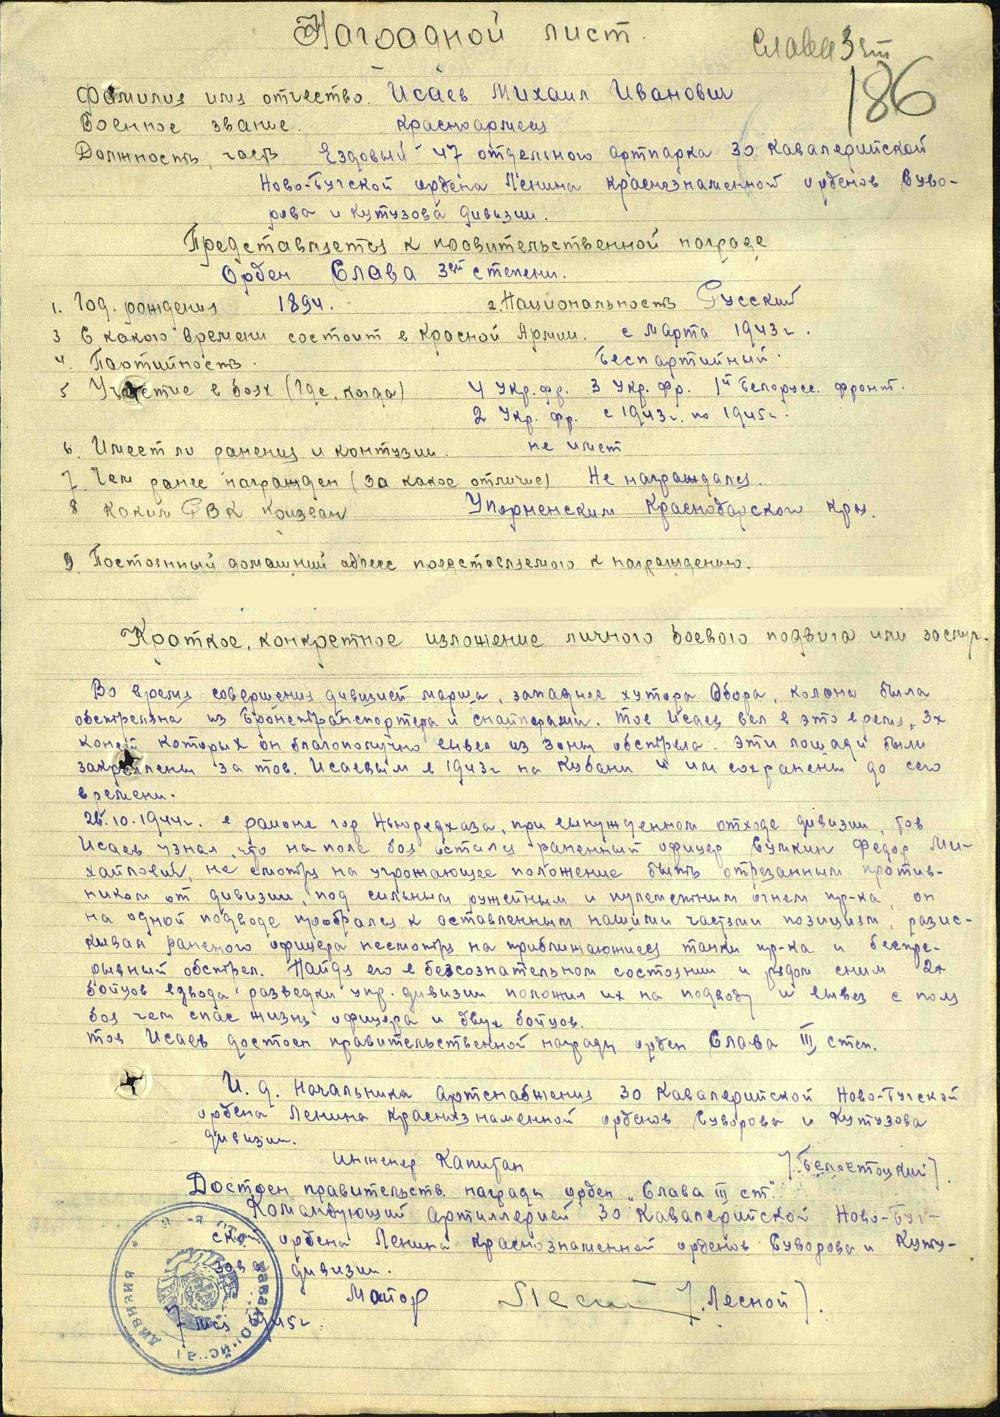 Наградной лист.
Слава 3 ст
186
Фамилия имя отчество. Исаев Михаил Иванович
Военное звание. Красноармеец
Должность, часть Ездовый 47 отдельного артпарка 30 Кавалерийской
Ново-Бугской ордена Ленина краснознаменной орденов Суво-
рова и Кутузова дивизии.
Представляется к правительственной награде
Орден Слава 3ей степени.
1. Год. рождения 1894. 2. Национальность Русский
3 С какого времени состоит в Красной Армии. с Марта 1943г.
4. Партийность. Беспартийный.
5 Участие в боях (где, когда) 4 Укр. фр. 3 Укр. Фр. 1й Белорусс. фронт.
2 Укр. фр. с 1943г. по 1945г.
6. Имеет ли ранения и контузии. не имеет
7. Чем ранее награжден (за какое отличие) Не награждался.
8 Каким РВК призван Упорненским Краснодарского кря.
9. Постоянный домашний адрес представляемого к награждению.
Краткое, конкретное изложение личного боевого подвига или заслуг.
Во время совершения дивизией марша, западнее хутора Обора, колона была
обстреляна из бронетранспортера и снайперами. Тов Исаев вел в это время, 3х
коней которых он благополучно вывел из зоны обстрела. Эти лошади были
закреплены за тов. Исаевым в 1943г на Кубани и им сохранены до сего
времени.
26.10.1944г. в районе гор Ньюредхаза, при вынужденном отходе дивизии, тов
Исаев узнал, что на поле боя остался раненный офицер Сумкин Федор Ми-
хайлович, не смотря на угрожающее положение быть отрезанным против-
ником от дивизии, под сильным ружейным и пулеметным огнем пр-ка, он
на одной подводе пробрался к оставленным нашими частями позициям, разис-
кивая раненого офицера несмотря на приближающиеся танки пр-ка и беспре-
рывный обстрел. Найдя его в безсознательном состоянии и рядом с ним 2х
бойцов взвода разведки упр. дивизии положил их на подводу и вывез с поля
боя чем спас жизнь офицера и двух бойцов.
тов Исаев достоен правительственной награды орден Слава III степ.
И. д. Начальника Артснабжения 30 Кавалерийской Ново-Бугской
ордена Ленина краснознаменной орденов Суворова и Кутузова
дивизии.
инженер Капитан /Белостоцкий/.
Достоен правительств. награды орден „Слава III ст".
Командующий артиллерией 30 Кавалерийской Ново-Буг-
ской ордена Ленина краснознаменной орденов Суворова и Куту-
зов дивизии.
Майор /Лесной/.
7 мая 1945г.